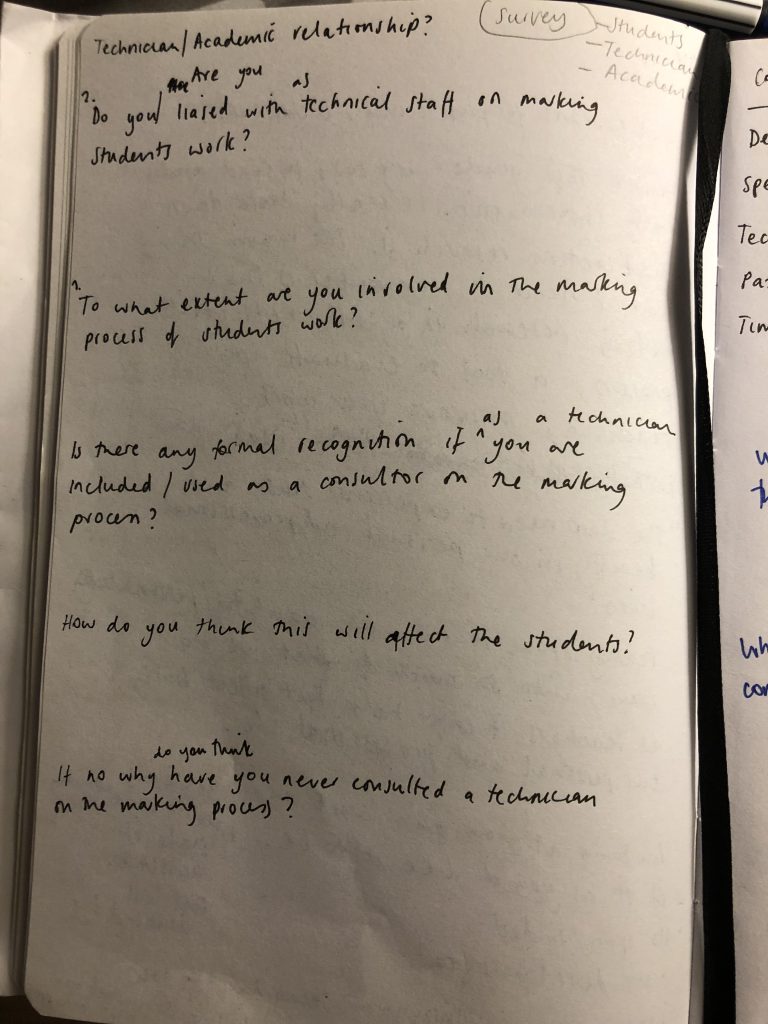 Technician/Academic relationship?
Survey
- Students
- Technician
- Academic
Are you as
?. Do you liased with technical staff on marking
students work?
?. To what extent are you involved in the marking
process of students work?
as a technician
Is there any formal recognition if ^ you are
included / used as a consultor on the marking
process?
How do you think this will affect the students?
do you think
If no why have you never consulted a technician
on the marking process?
De
Spe
Tec
Pa
Tim
Wh
con